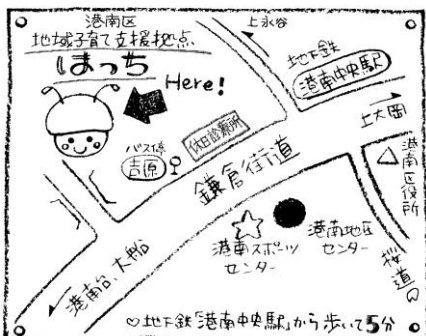 港南区
地域子育て支援拠点
はっち
Here!
上永谷
地下鉄
港南中央駅
上大岡
休日診療所
バス停
吉原
鎌倉街道
港南区役所
港南スポーツ
センター
港南地区
センター
桜道
港南台、大船
♡地下鉄「港南中央駅」から歩いて5分